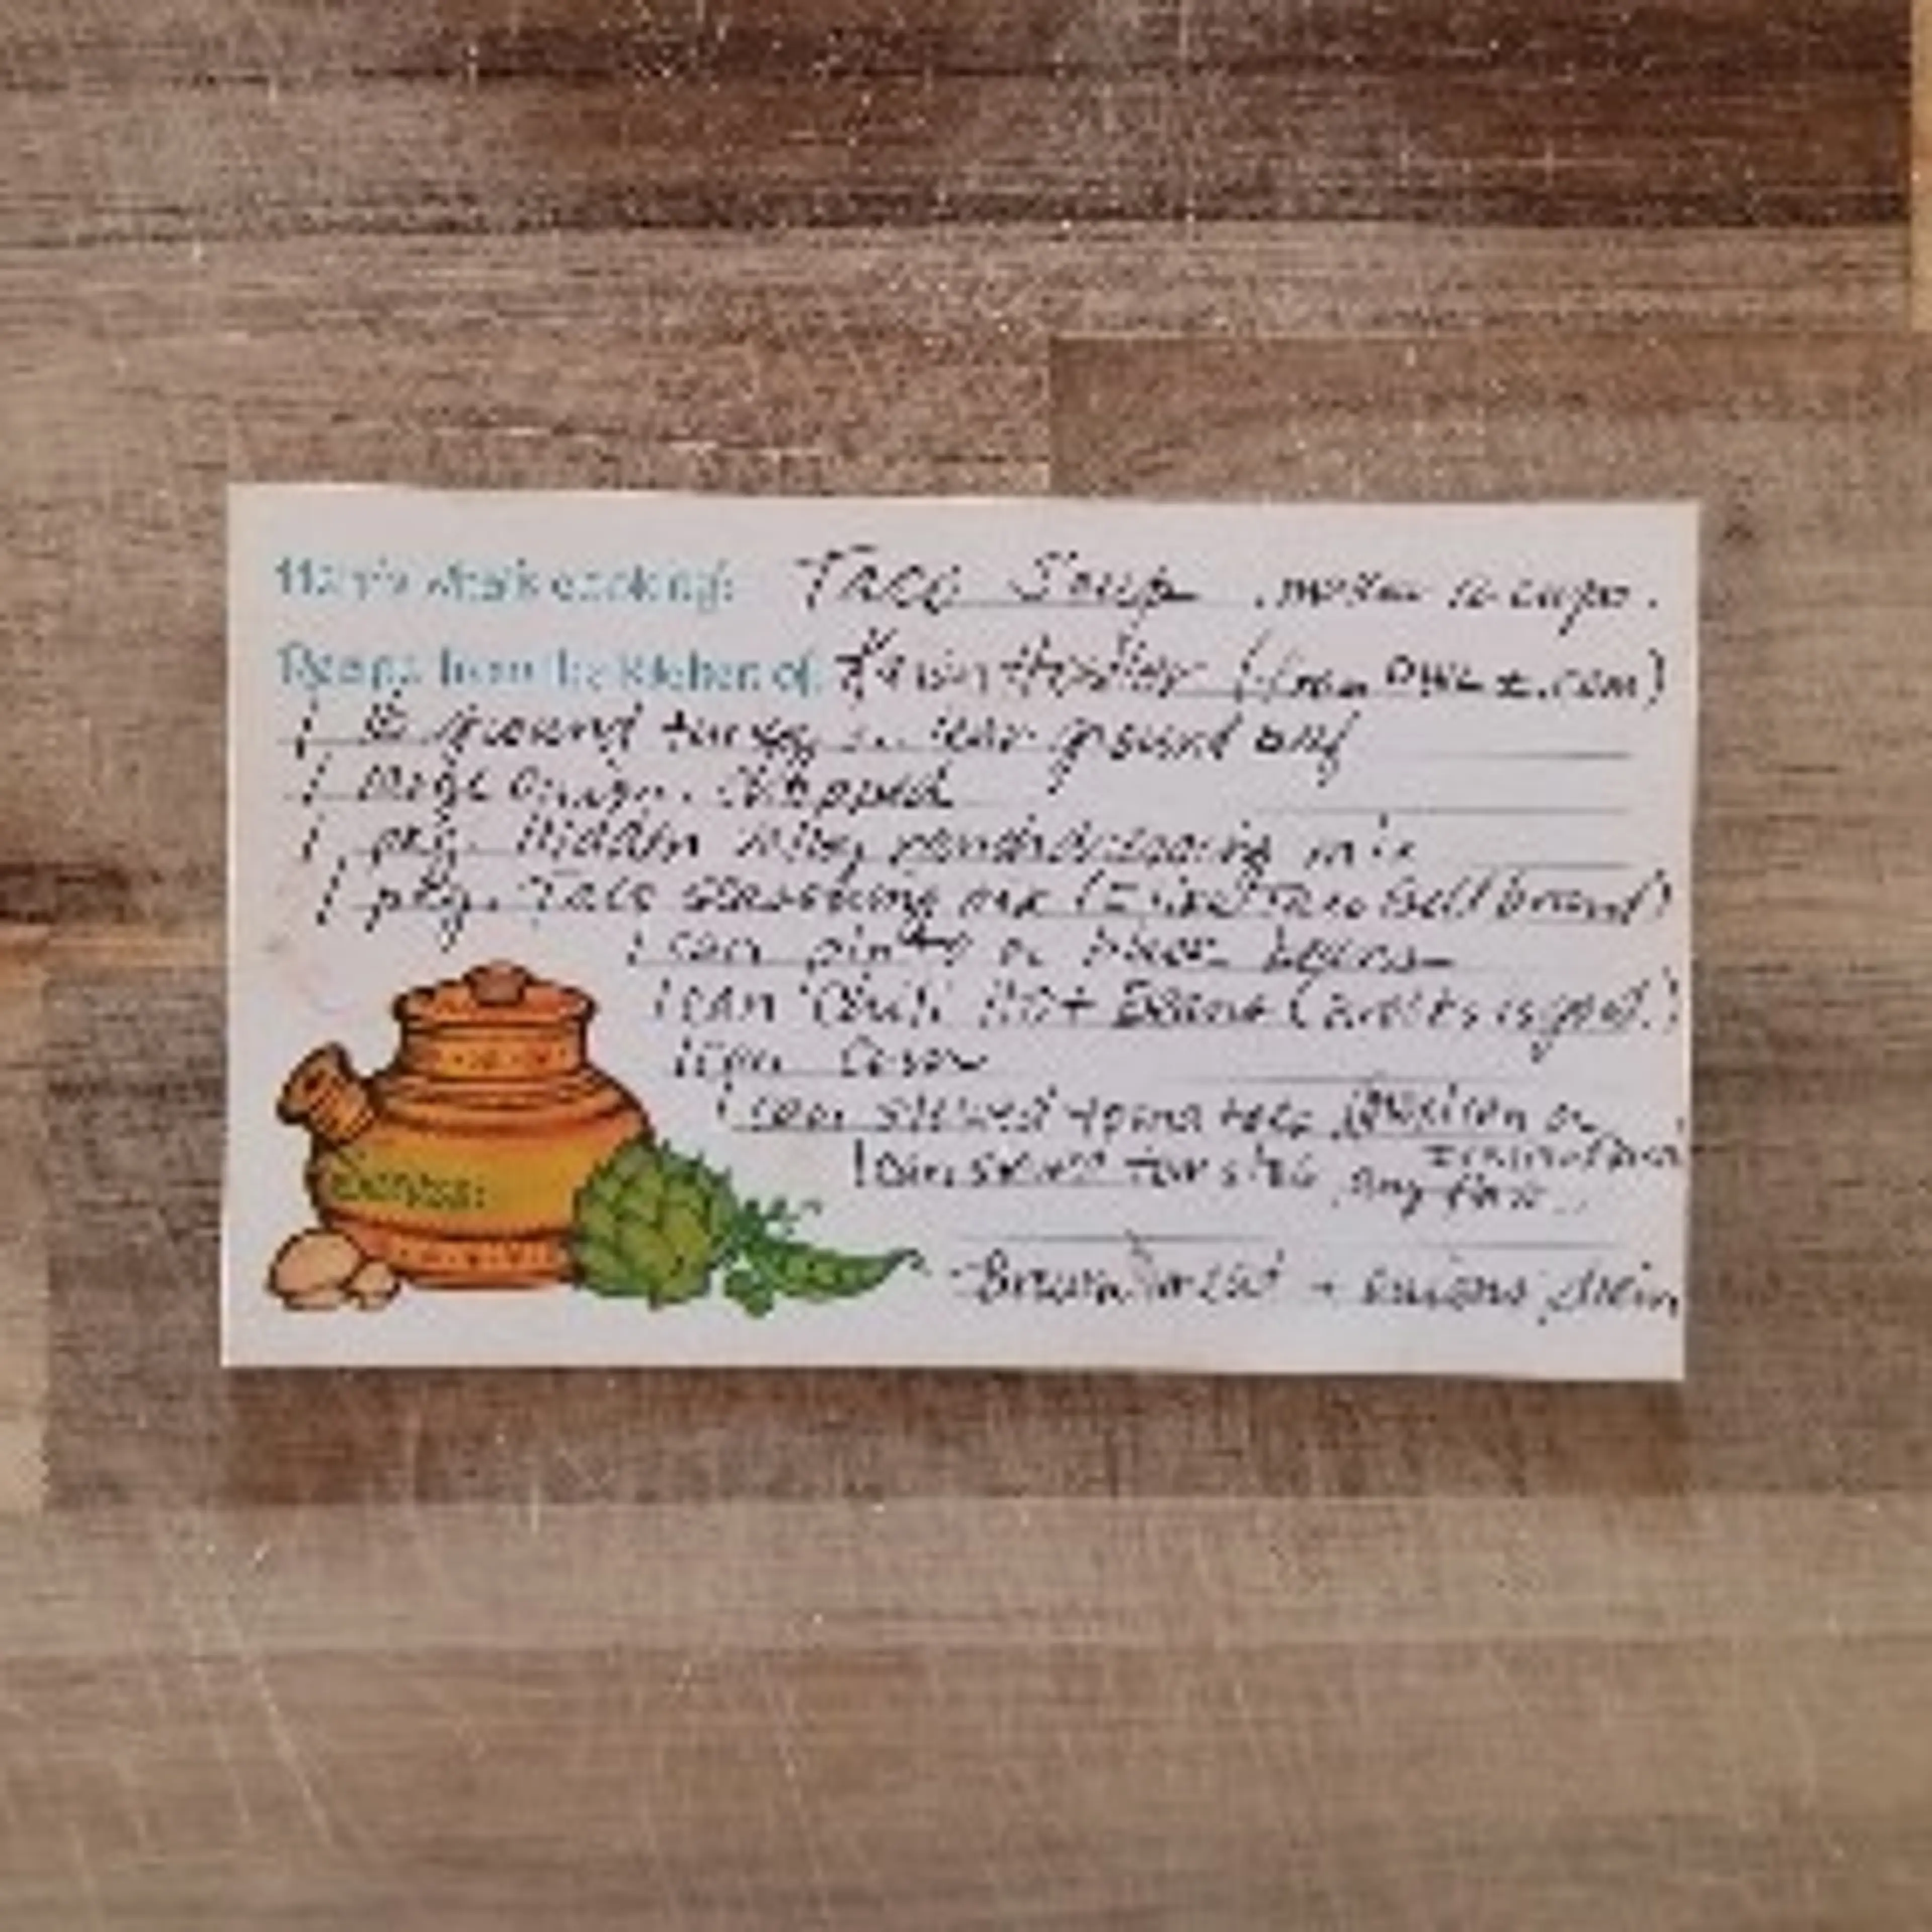 Here's what's cooking: Taco Soup makes 12 cups.
Recipe from the kitchen of: (from
1 lb ground turkey or lean ground beef
1 large onion, chopped
1 pkg. Hidden Valley ranch dressing mix
1 pkg. Taco seasoning mix (I used Taco Bell brand)
1 can pinto or black beans
1 can Chili Hot Beans ( is good.)
1 can Corn
1 can stewed tomatoes, Mexican or
1 can stewed tomatoes any flavor
Serves:
Brown meat + onions, drain